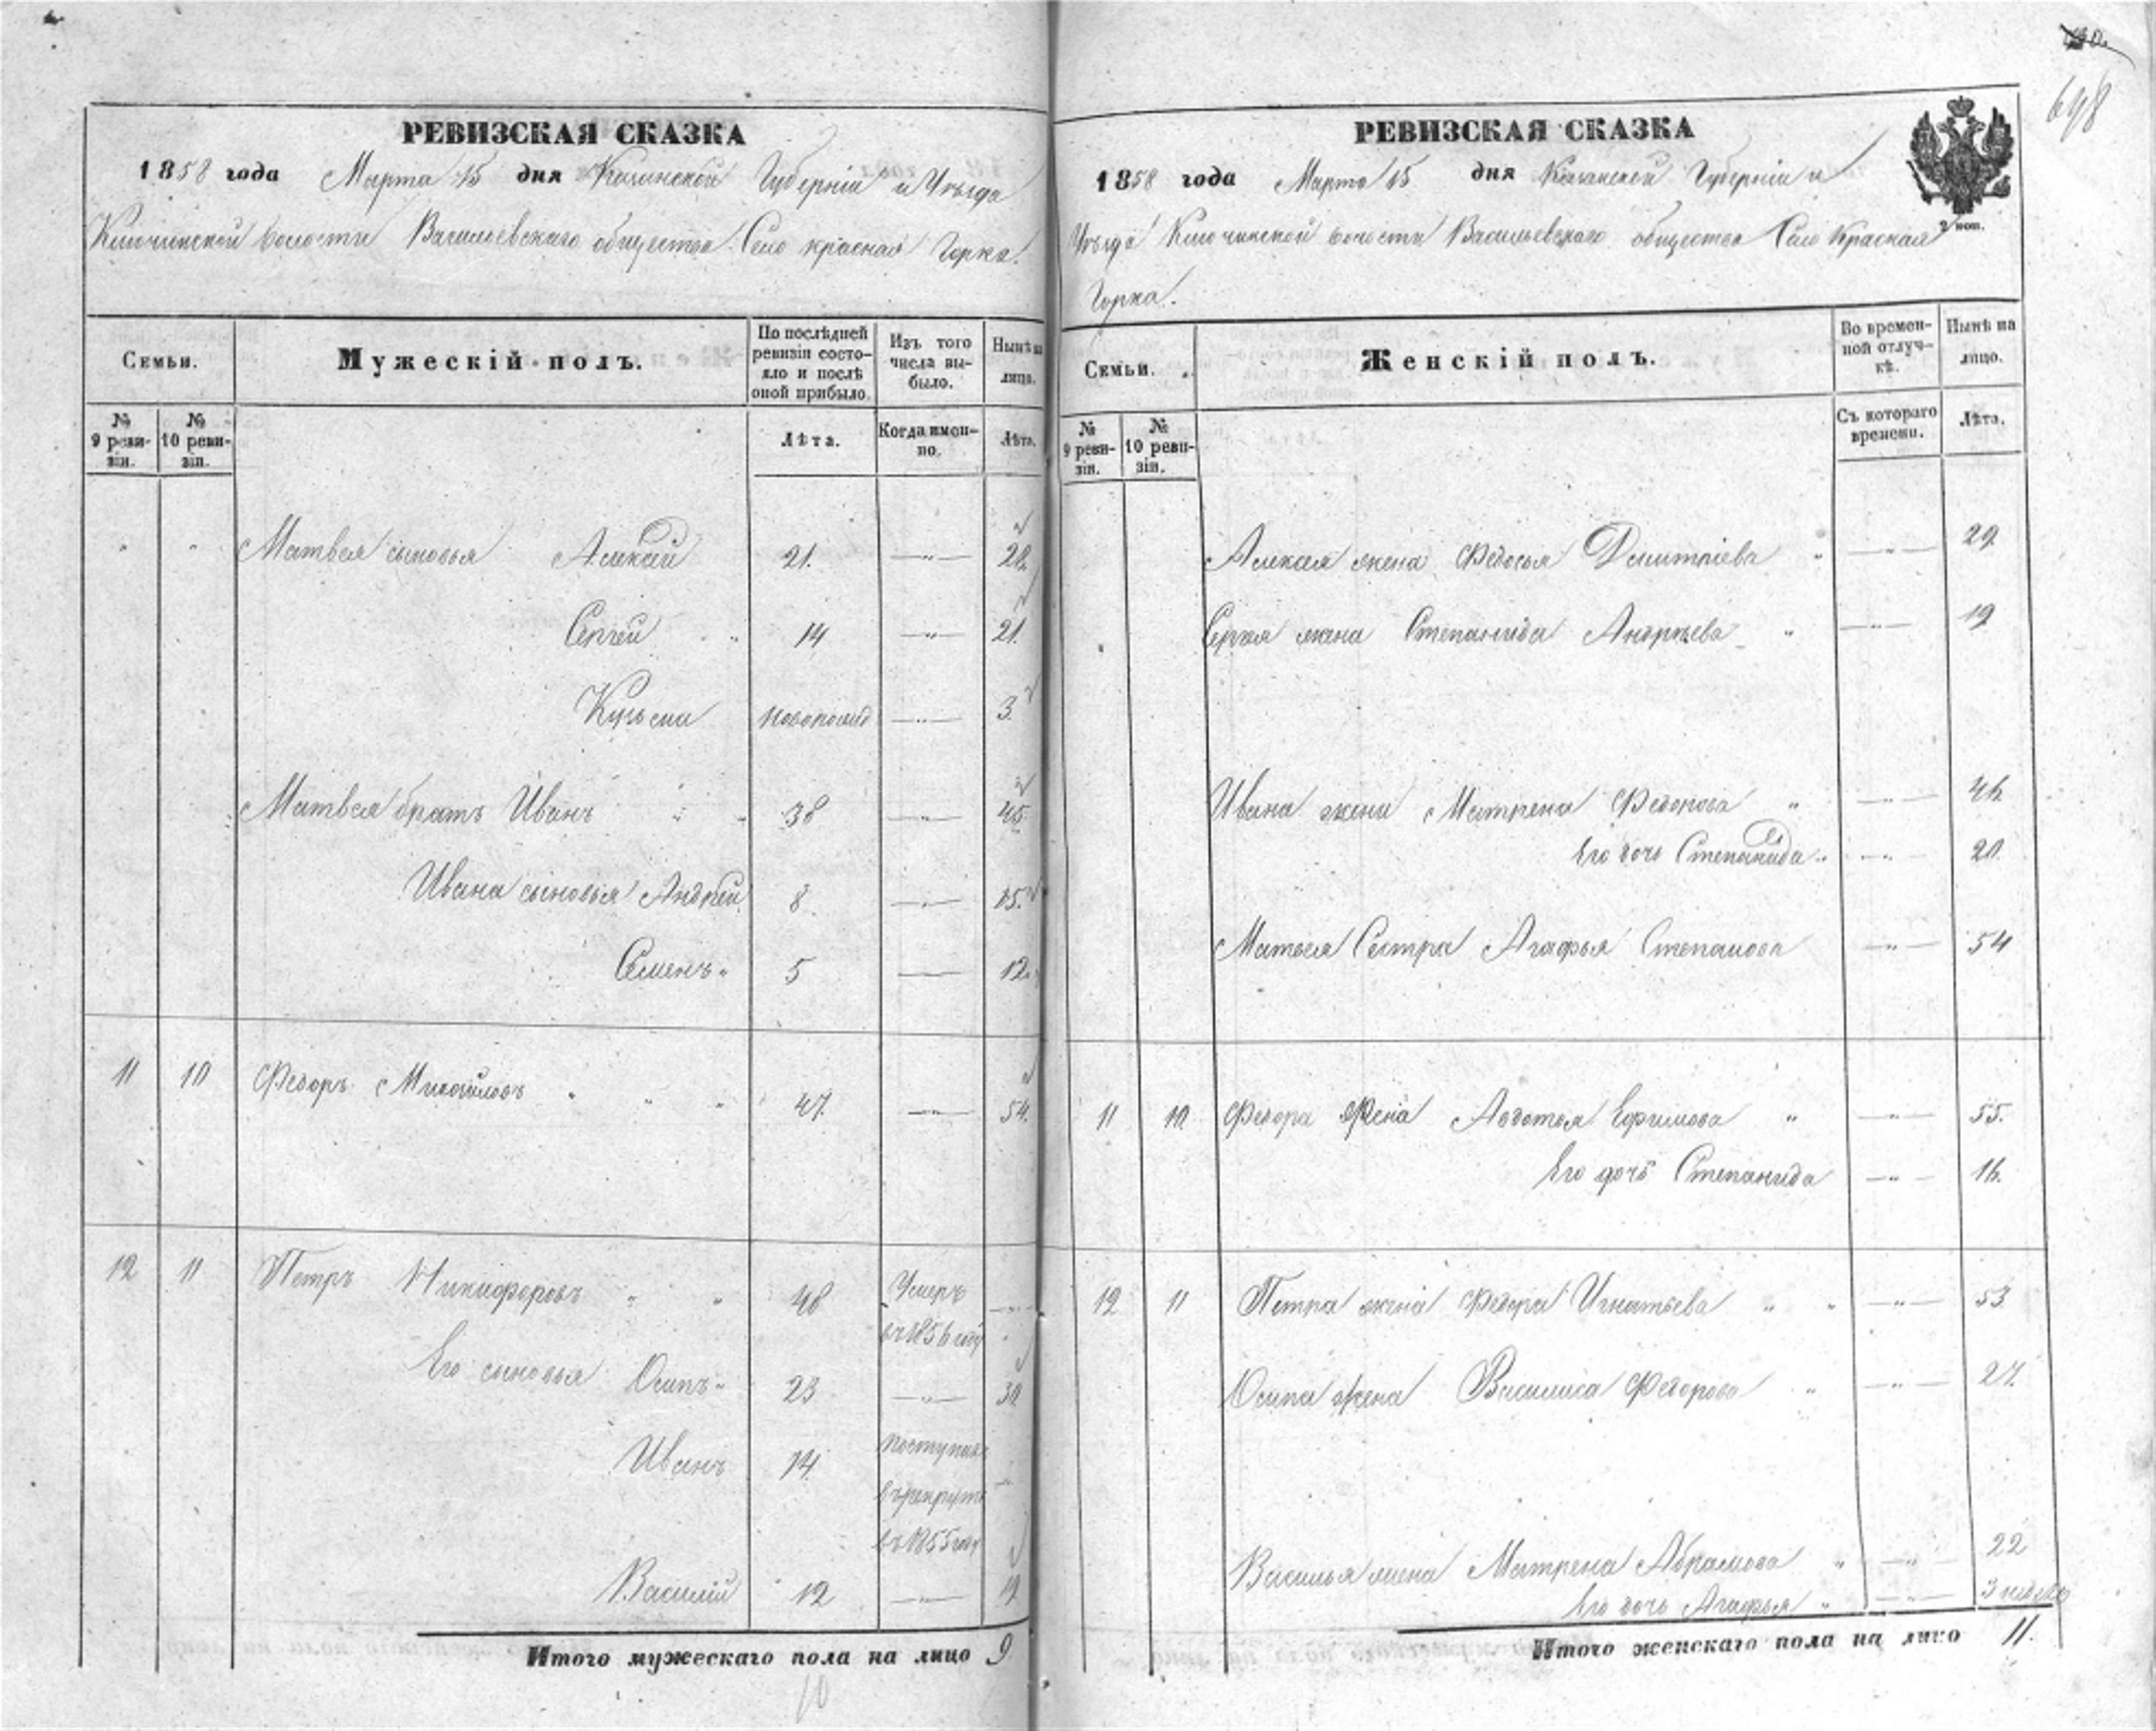 698
РЕВИЗСКАЯ СКАЗКА
1858 года Марта 15 дня Казанской Губерніи и Уѣзда
Ключинской волости Васильевскаго общества Село красная Горка.
Семьи.
Мужескій полъ.
По послѣдней ревизіи состояло и послѣ оной прибыло.
Изъ того числа выбыло.
Нынѣ на лицо.
№ 9 ревизіи.
№ 10 ревизіи.
Лѣта.
Когда именно.
Лѣта.
Матвея сыновья Алексей 21. —„— 28.
Сергей „ 14 —„— 21.
Кузьма новорожд —„— 3.
Матвея братъ Иванъ „ „ 38 —„— 45.
Ивана сыновья Андрей 8 —„— 15.
Семенъ „ 5 —„— 12.
11 10 Федоръ Михайловъ „ „ „ 47. —„— 54.
12 11 Петръ Никифоровъ „ „ 48 Умеръ —„—
въ 1856 году
Его сыновья Осипъ „ 23 —„— 30
Иванъ 14. поступилъ —„—
в рекруты
въ 1855 году
Василій 12 —„— 19
Итого мужескаго пола на лицо 9
10
РЕВИЗСКАЯ СКАЗКА
1858 года Марта 15 дня Казанской Губерніи и
Уѣзда Ключинской волости Васильевскаго общества Село Красная
Горка.
2 коп.
Семьи.
Женскій полъ.
Во временной отлучкѣ.
Нынѣ на лицо.
№ 9 ревизіи.
№ 10 ревизіи.
Съ котораго времени.
Лѣта.
Алексея жена Федосья Дмитріева „ —„— 29.
Сергея жена Степанида Андреева „ —„— 19
Ивана жена Матрена Федорова „ —„— 46.
Его дочь Степанида „ —„— 20.
Матвея Сестра Агафья Степанова —„— 54
11 10 Федора жена Авдотья Ефимова „ —„— 55.
Его дочь Степанида —„— 16.
12 11 Петра жена Федора Игнатьева „ „ —„— 53
Осипа жена Василиса Федорова „ —„— 27.
Василья жена Матрена Абрамова „ —„— 22
Его дочь Агафья „ —„— 3 недель
Итого женскаго пола на лицо 11.